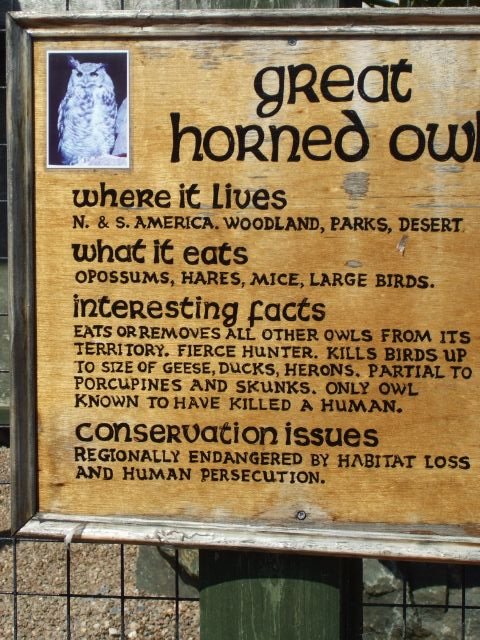 great
horned owl
where it lives
N. & S. AMERICA. WOODLAND, PARKS, DESERT
what it eats
OPOSSUMS, HARES, MICE, LARGE BIRDS.
interesting facts
EATS OR REMOVES ALL OTHER OWLS FROM ITS
TERRITORY. FIERCE HUNTER. KILLS BIRDS UP
TO SIZE OF GEESE, DUCKS, HERONS. PARTIAL TO
PORCUPINES AND SKUNKS. ONLY OWL
KNOWN TO HAVE KILLED A HUMAN.
conservation issues
REGIONALLY ENDANGERED BY HABITAT LOSS
AND HUMAN PERSECUTION.